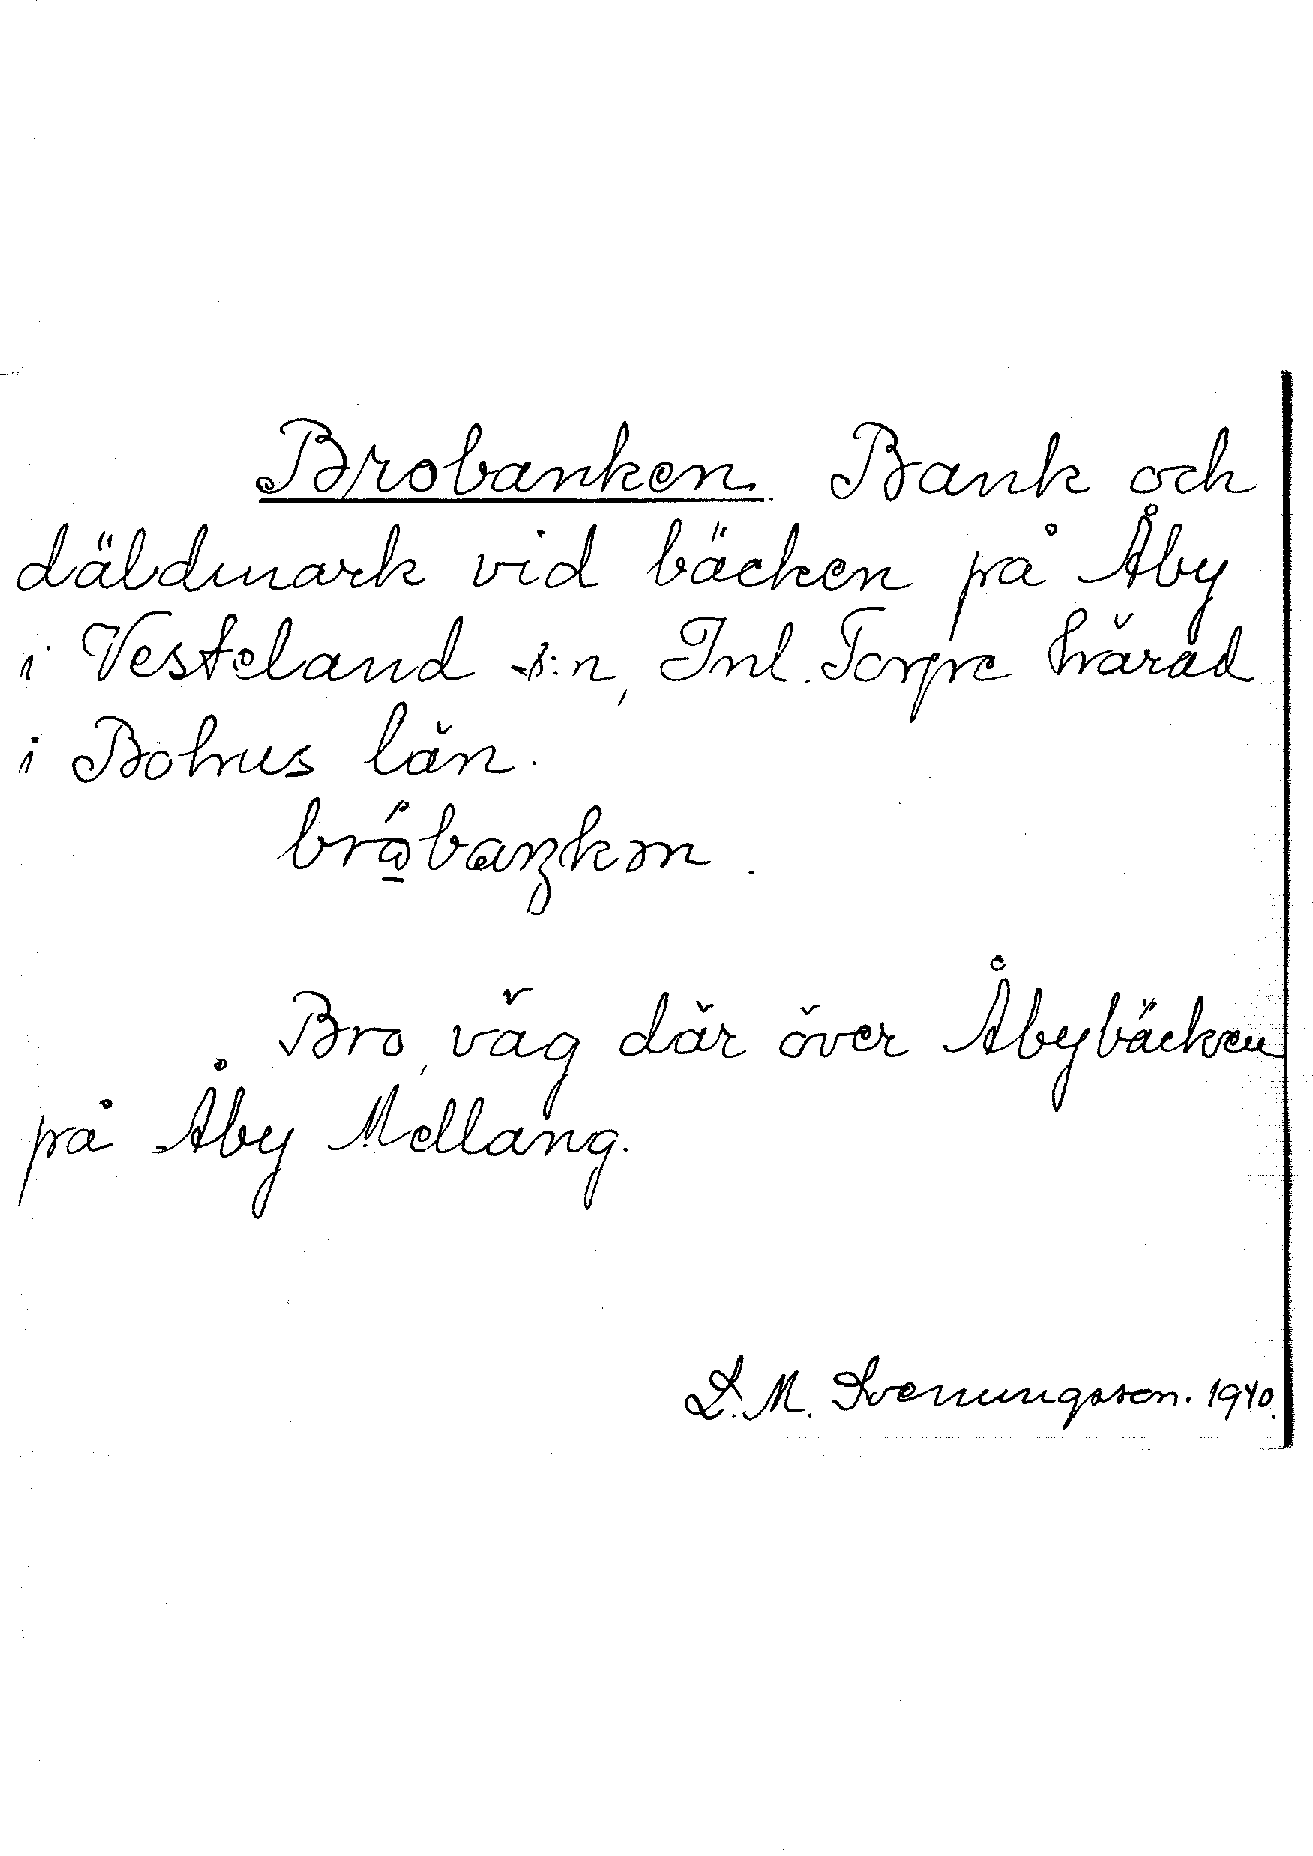 Brobanken. Bank och
däldmark vid bäcken på Åby
i Vesteland s:n, Inl. Torpe härad
i Bohus län.
Bro, väg där över Åbybäcken
på Åby Mellang.
L. M. Svenungsson. 1940.